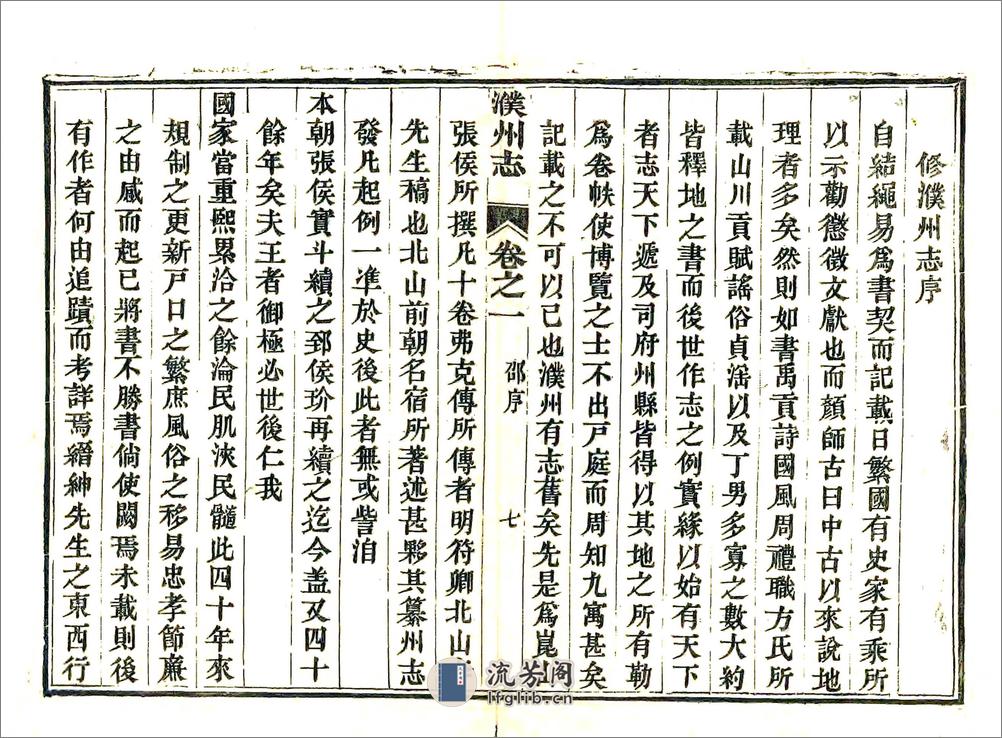 修濮州志序
自結繩易爲書契而記載日繁國有史家有乘所
以示勸懲徵文獻也而顏師古曰中古以來說地
理者多矣然則如書禹貢詩國風周禮職方氏所
載山川貢賦謠俗貞滛以及丁男多寡之數大約
皆釋地之書而後世作志之例實緣以始有天下
者志天下遞及司府州縣皆得以其地之所有勒
爲卷帙使博覽之士不出戸庭而周知九寓甚矣
記載之不可以已也濮州有志舊矣先是爲崑
濮州志 卷之一 邵序 七
張侯所撰凡十卷弗克傳所傳者明符卿北山
先生稿也北山前朝名宿所著述甚夥其纂州志
發凡起例一準於史後此者無或訾洎
本朝張侯實斗續之郅侯玠再續之迄今盖又四十
餘年矣夫王者御極必世後仁我
國家當重熙累洽之餘淪民肌浹民髓此四十年來
規制之更新戸口之繁庶風俗之移易忠孝節廉
之由感而起已將書不勝書倘使闕焉未載則後
有作者何由追蹟而考詳焉縉紳先生之東西行
流芳阁
lfglib.cn